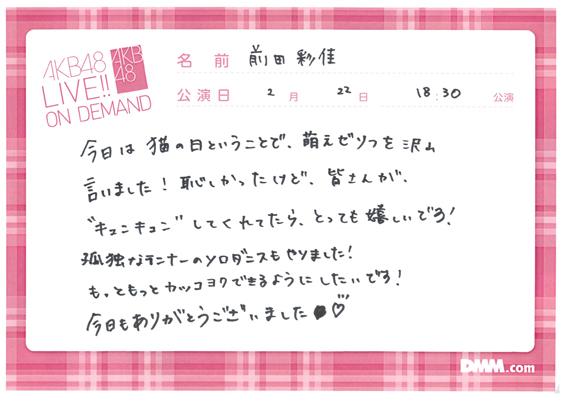 AKB48
LIVE!!
ON DEMAND
AKB
48
名前 前田彩佳
公演日 2月 22日 18:30 公演
今日は猫の日ということで、萌えゼリフを沢山
言いました！恥しかったけど、皆さんが、
"キュンキュン"してくれてたら、とっても嬉しいです！
孤独なランナーのソロダンスもやりました！
もっともっとカッコヨクできるようにしたいです！
今日もありがとうございました♡
DMM.com